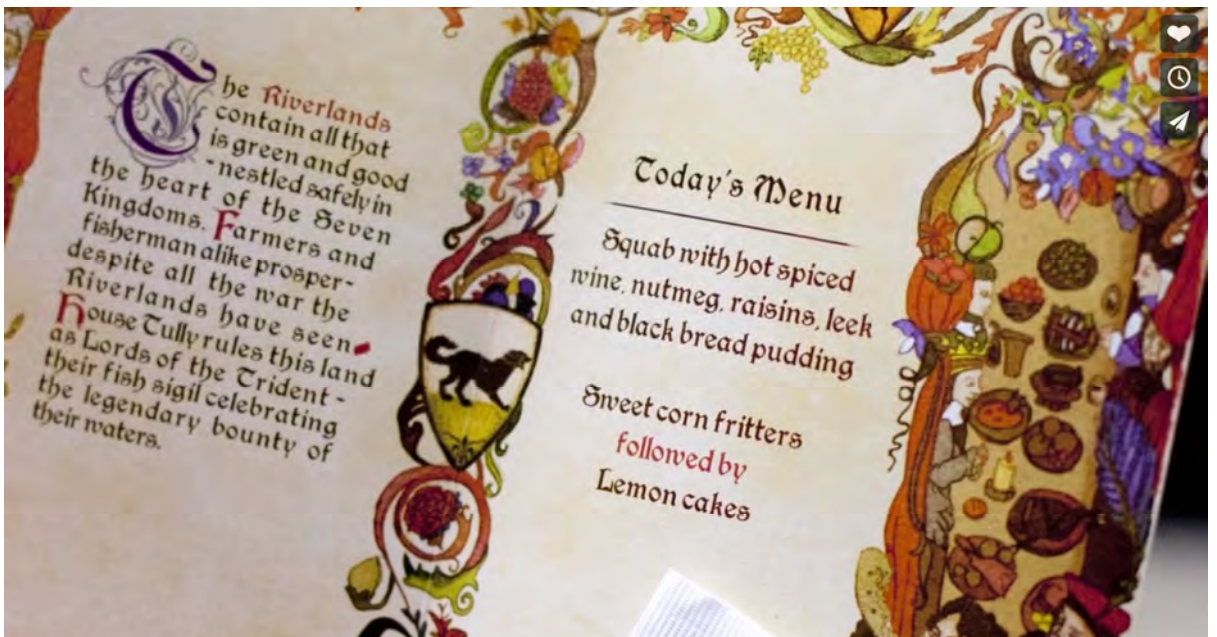 The Riverlands
contain all that
is green and good
- nestled safely in
the heart of the Seven
Kingdoms. Farmers and
fisherman alike prosper-
despite all the war the
Riverlands have seen.
House Tully rules this land
as Lords of the Trident -
their fish sigil celebrating
the legendary bounty of
their waters.
Today's Menu
Squab with hot spiced
wine, nutmeg, raisins, leek
and black bread pudding
Sweet corn fritters
followed by
Lemon cakes